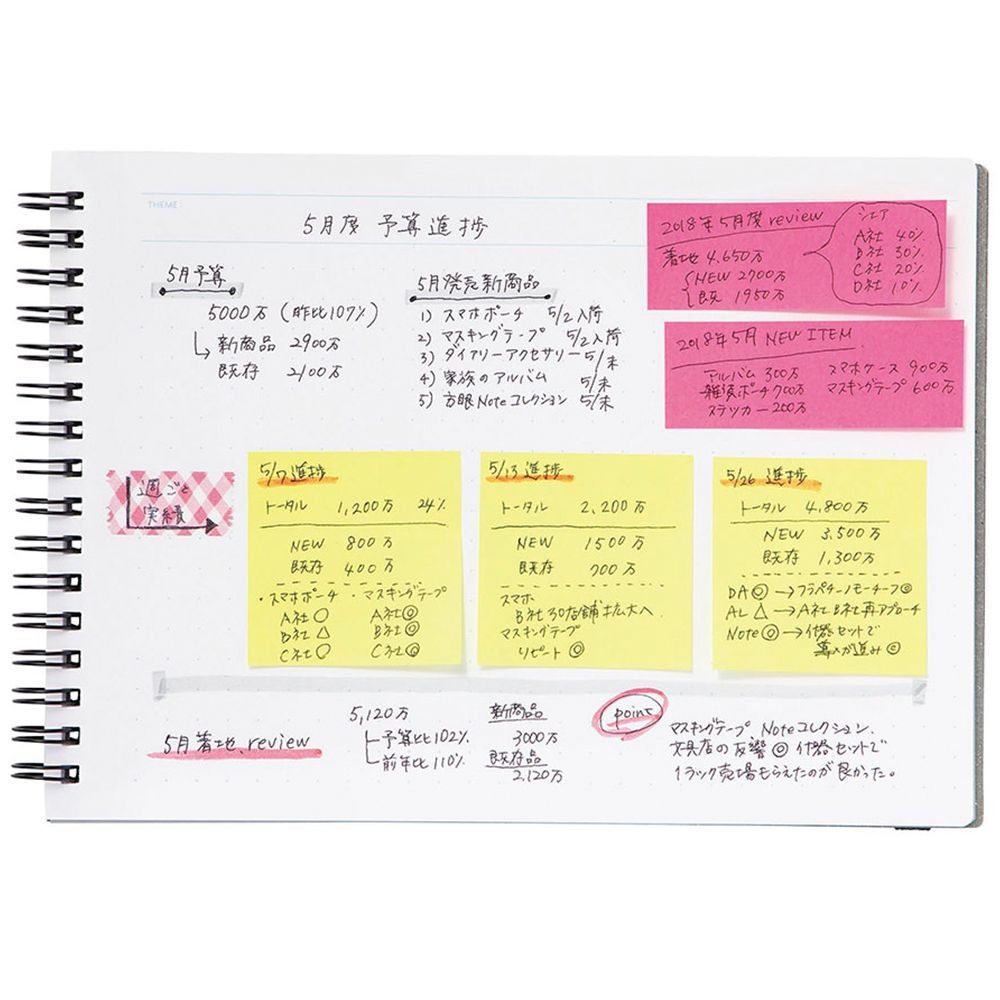 THEME
5月度 予算進捗
5月予算
5000万 (昨比107%)
新商品 2900万
既存 2100万
5月発売新商品
1) スマホポーチ 5/2入荷
2) マスキングテープ 5/2入荷
3) ダイアリーアクセサリー 5/末
4) 家族のアルバム 5/末
5) 方眼Noteコレクション 5/末
2018年5月度review
着地 4.650万
NEW 2700万
既 1950万
シェア
A社 40%
B社 30%
C社 20%
D社 10%
2018年5月 NEW ITEM
アルバム 300万 スマホケース 900万
雑貨ポーチ 700万 マスキングテープ 600万
ステッカー 200万
週ごと
実績
5/7進捗
トータル 1,200万 24%
NEW 800万
既存 400万
・スマホポーチ ・マスキングテープ
A社○ A社◎
B社△ B社◎
C社○ C社◎
5/13進捗
トータル 2,200万
NEW 1500万
既存 700万
スマホ
B社30店舗拡大へ
マスキングテープ
リピート◎
5/26 進捗
トータル 4,800万
NEW 3,500万
既存 1,300万
DA◎→フラペチーノモチーフ◎
AL△→A社B社再アプローチ
Note◎→什器セットで
導入が進み◎
5月着地review
5,120万
予算比102%
前年比110%
新商品
3000万
既存品
2,120万
point
マスキングテープ Noteコレクション.
文具店の反響◎ 什器セットで
1ラック売場もらえたのが良かった。